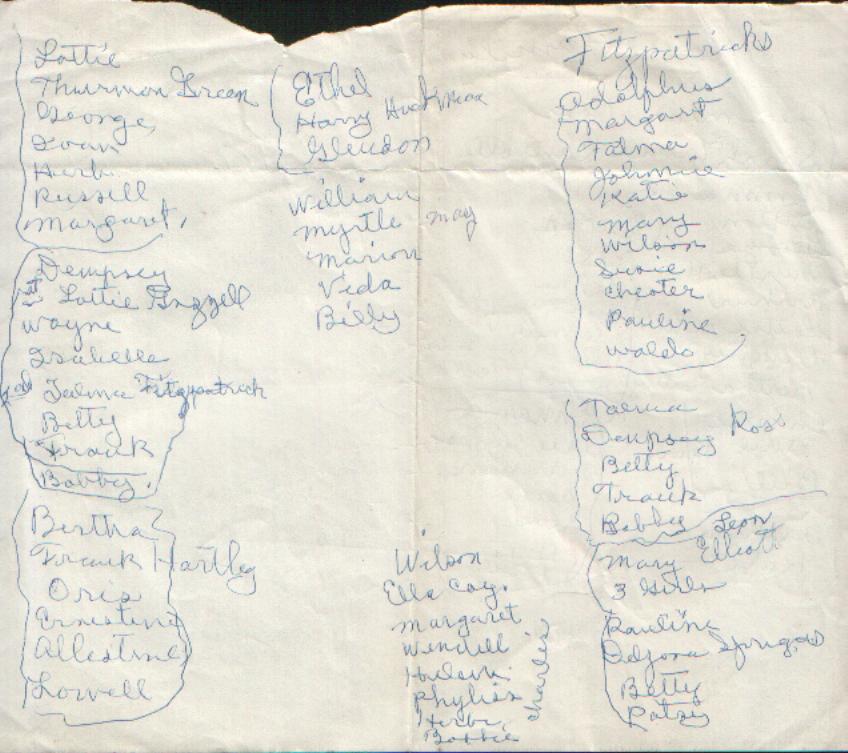 Lottie
Thurmon Green
George
Herb
Russell
Margaret,
Dempsey
1st Lottie
Wayne
Isabelle
2nd Talma Fitzpatrick
Betty
Frank
Bobby.
Bertha
Frank Hartley
Oris
Ernestine
Allestine
Lowell
Ethel
Harry Huckman
Glendon
William
Myrtle may
Marion
Veda
Billy
Wilson
Ella Cay.
Margaret
Wendell
Phyliss
Herbe
Bobbie
Charles
Fitzpatricks
Adolphus
Margaret
Talma
Johnnie
Katie
Mary
Wilson
Susie
Chester
Pauline
Waldo
Talma
Dempsey Ross
Betty
Frank
Bobby
Leon
Mary Elliott
3 Girls
Pauline
Betty
Patsy